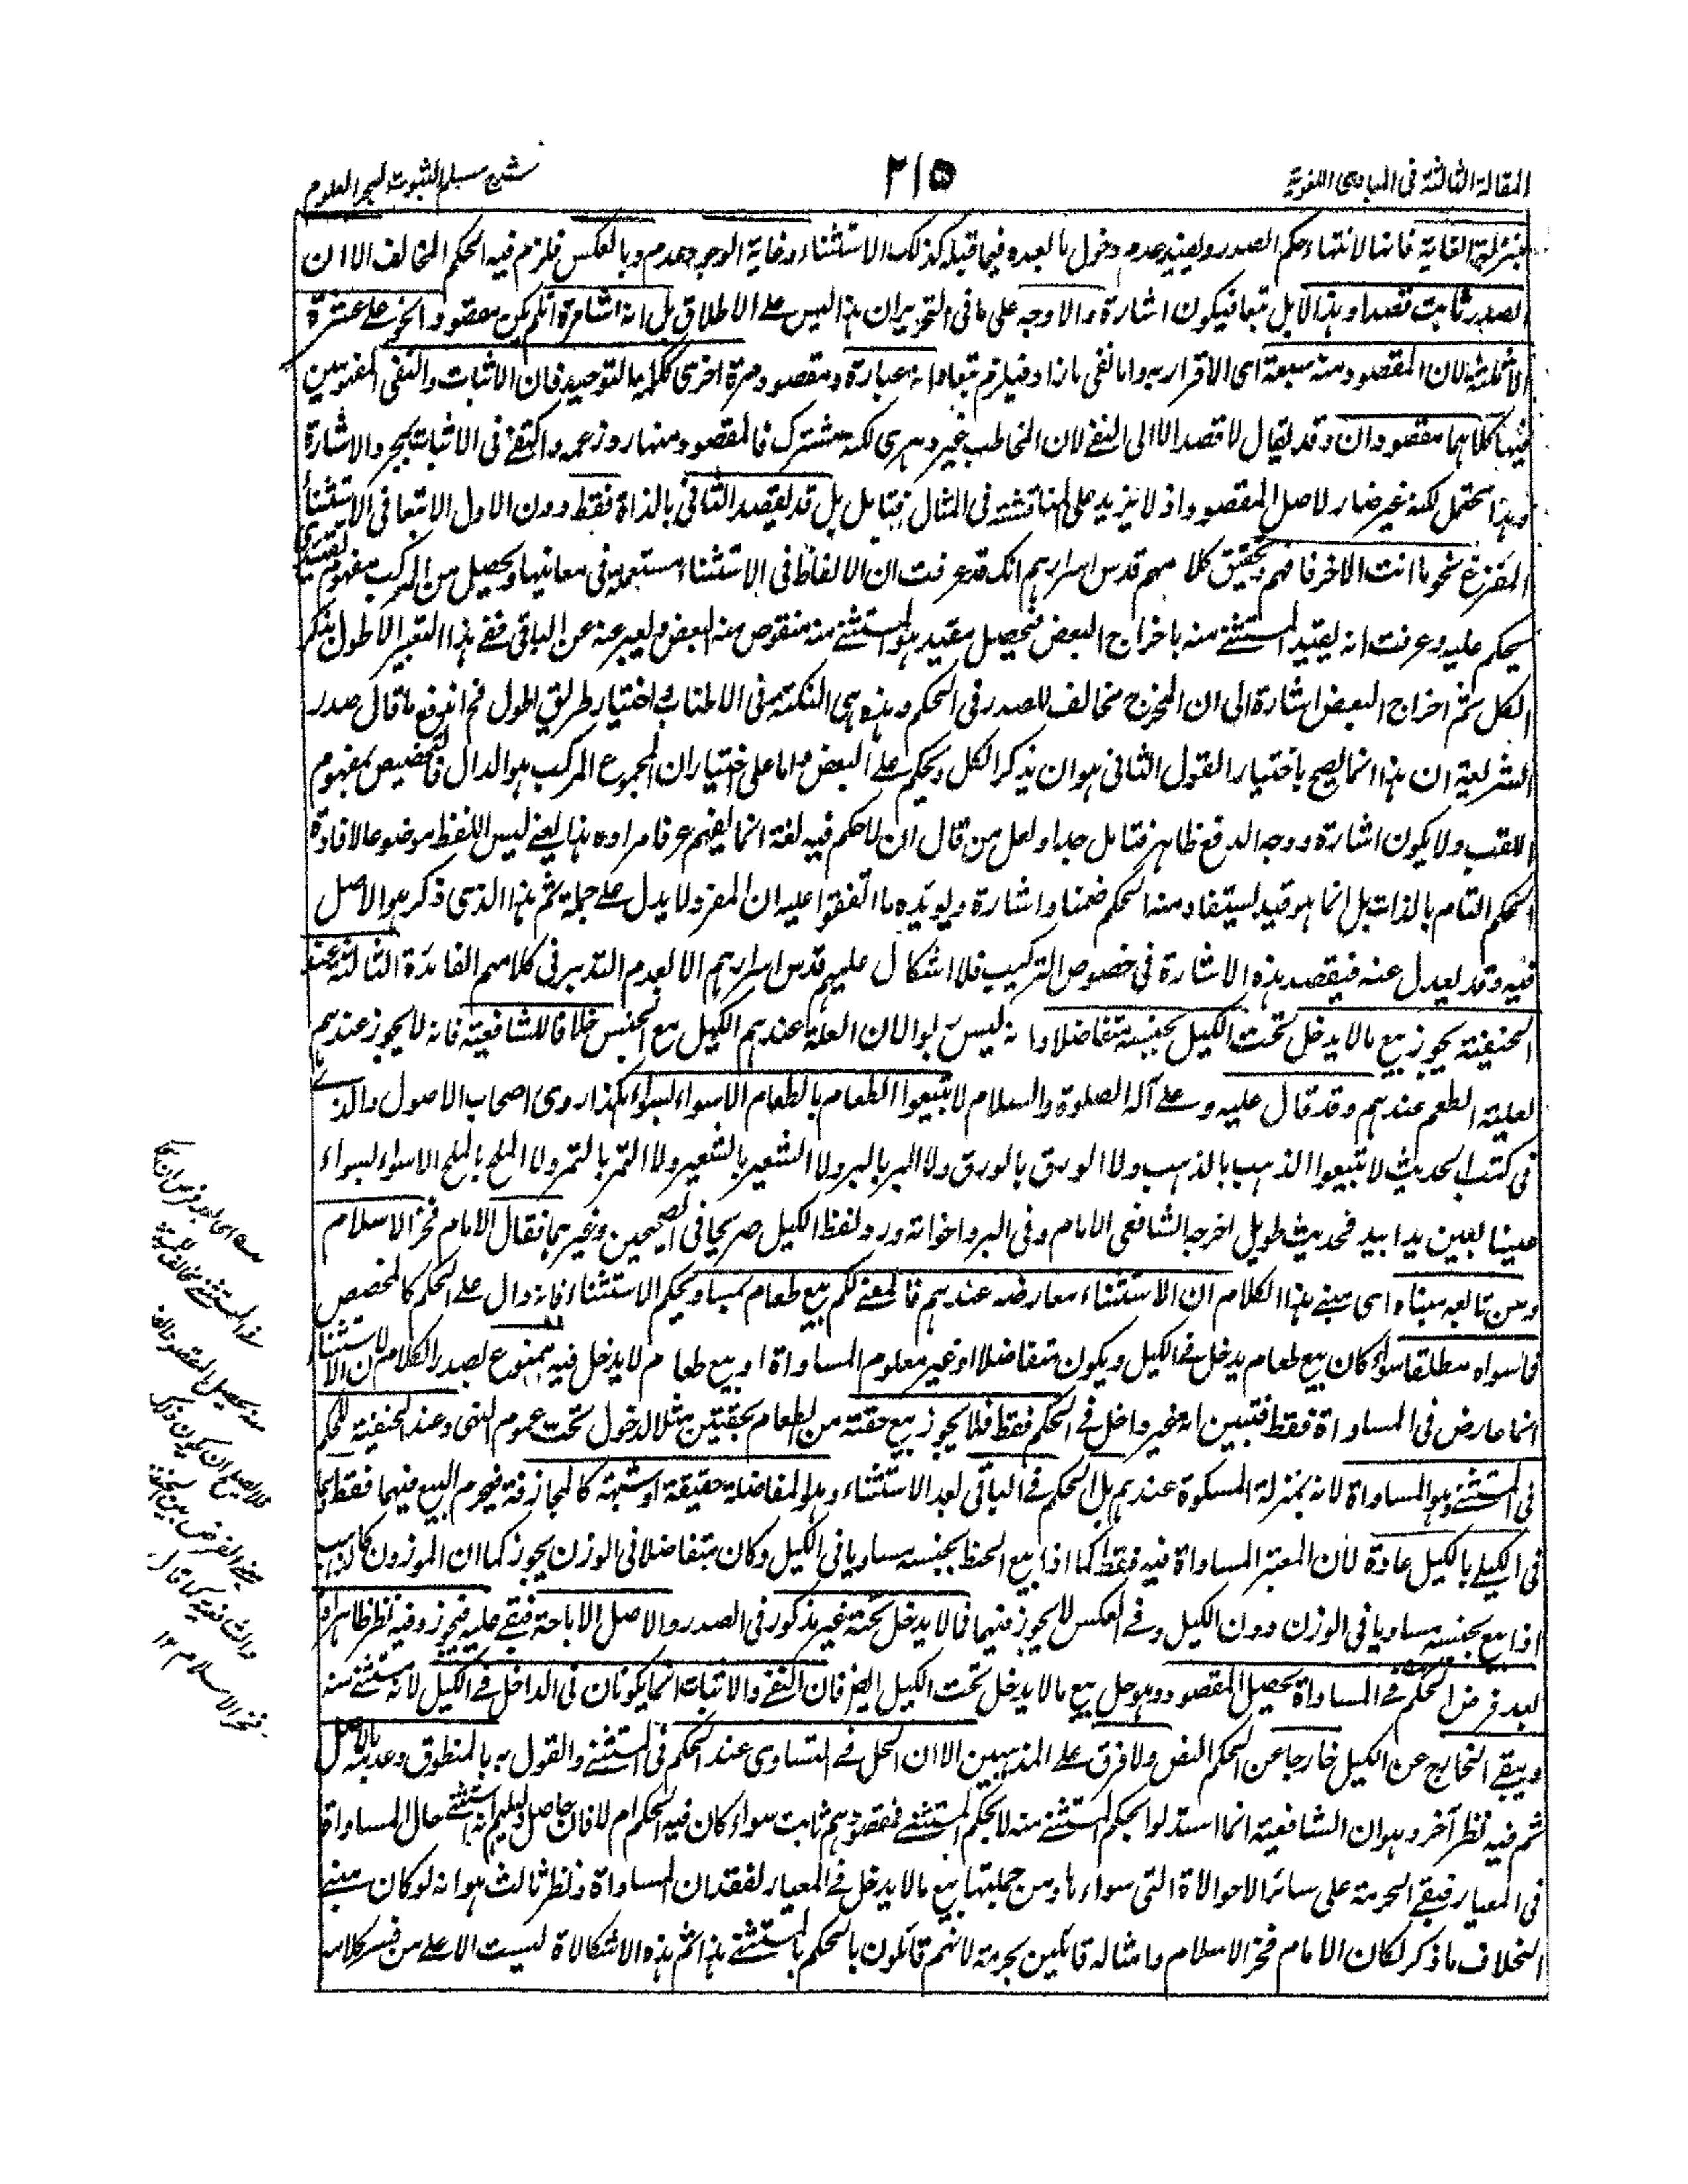 المقالة الثالثة فى المبادى اللغوية
٢١٥
شرح مسلم الثبوت لبحر العلوم
بمنزلة الغاية فانها لانتهاء حكم الصدر ويفيد عدم دخول ما بعده فيما قبله كذلك الاستثناء وغاية الوجود عدم وبالعكس فلزم فيه الحكم المخالف الا ان
الصدر ثابت قصدا وهذا لا بل تبعا فيكون اشارة والاوجه على ما فى التحرير ان هذا ليس على الاطلاق بل انه اشارة ان لم يكن مقصودا نحو على عشرة
الا ثلثة لان المقصود منه سبعة اى الاقرار به واما نفى ما زاد فيلزم تبعا وانه عبارة ومقصود مرة اخرى ككلمة التوحيد فان الاثبات والنفى المفهومين
فيها كلاهما مقصودان وقد يقال لا قصد الا الى النفى لان المخاطب غير دهرى لكنه مشترك فالمقصود منها رد زعمه واكتفى فى الاثبات بمجرد الاشارة
وهذا محتمل لكنه غير ضار لاصل المقصود اذ لا يزيد على المناقشة فى المثال فتامل بل قد يقصد الثانى بالذات فقط دون الاول الا تبعا فى الاستثناء
المفرغ نحو ما انت الا حر فافهم وتحقيق كلامهم قدس اسرارهم انك قد عرفت ان الالفاظ فى الاستثناء مستعملة فى معانيها ويحصل من المركب مفهوم تقييدى
يحكم عليه وعرفت انه يقيد المستثنى منه باخراج البعض فيحصل مقيد هو المستثنى منه منقوص منه البعض ويعبر عنه عن الباقى ففى هذا التعبير الاطول بذكر
الكل ثم اخراج البعض اشارة الى ان المخرج مخالف للصدر فى الحكم وهذه هى النكتة فى الاطناب واختيار طريق اطول فح اندفع ما قال صدر
الشريعة ان هذا انما يصح باختيار القول الثانى هو ان يذكر الكل ويحكم على البعض واما على اختيار ان المجموع المركب هو الدال فالتخصيص بمفهوم
اللقب ولا يكون اشارة ووجه الدفع ظاهر فتامل جدا ولعل من قال ان لا حكم فيه لغة انما يفهم عرفا مراده هذا يعنى ليس اللفظ موضوعا لافادة
الحكم التام بالذات بل انما هو قيد يستفاد منه الحكم ضمنا واشارة ويؤيده ما اتفقوا عليه ان المفرد لا يدل على جملة ثم هذا الذى ذكر هو الاصل
فيه وقد يعدل عنه فيقصد هذه الاشارة فى خصوص التركيب فلا اشكال عليهم قدس اسرارهم الا بعدم التدبر فى كلامهم الفائدة الثالثة عند
الحنفية يجوز بيع ما لا يدخل تحت الكيل بجنسه متفاضلا وانه ليس ربوا لان العلة عندهم الكيل مع الجنس خلافا للشافعية فانه لا يجوز عندهم
لعلية الطعم عندهم وقد قال عليه وعلى آله الصلوة والسلام لا تبيعوا الطعام بالطعام الا سواء بسواء هكذا روى اصحاب الاصول والذى
فى كتب الحديث لا تبيعوا الذهب بالذهب ولا الورق بالورق ولا البر بالبر ولا الشعير بالشعير ولا التمر بالتمر ولا الملح بالملح الا سواء بسواء
عينا بعين يدا بيد فى حديث طويل اخرجه الشافعى الامام وفى البر واخواته ورد لفظ الكيل صريحا فى الصحيحين وغيرهما فقال الامام فخر الاسلام
ومن تابعه مبناه اى مبنى هذا الكلام ان الاستثناء معارضه عندهم فالمعنى لكم بيع طعام مساو بحكم الاستثناء فانه دال على الحكم كالمخصص
فما سواه مطلقا سواء كان بيع طعام يدخل فى الكيل ويكون متفاضلا او غير معلوم المساواة او بيع طعام لا يدخل فيه ممنوع لصدر الكلام لان الاستثناء
انما عارض فى المساواة فقط فتبين انه غير داخل فى الحكم فقط فلا يجوز بيع حفنة من الطعام بحفنتين مثلا لدخول تحت عموم النهى وعند الحنفية لا حكم
فى المستثنى وهو المساواة لانه بمنزلة المسكوت عندهم بل الحكم فى الباقى بعد الاستثناء وهو المفاضلة حقيقة او شبهة كالمجازفة فيحرم البيع فيهما فقط
فى الكيلى بالكيل عادة لان المعتبر المساواة فيه فقط كما اذا بيع الحنطة بجنسه مساويا فى الكيل وكان متفاضلا فى الوزن يجوز كما ان الموزون كالذهب
اذا بيع بجنسه مساويا فى الوزن دون الكيل وفى العكس لا يجوز فيهما فما لا يدخل تحته غير مذكور فى الصدر والاصل الاباحة فبقى عليه فيجوز وفيه نظر ظاهر
بعد فرض الحكم فى المساواة يحصل المقصود وهو حل بيع ما لا يدخل تحت الكيل ايضا فان النفى والاثبات انما يكونان فى الداخل فى الكيل لانه مستثنى منه
ويبقى الخارج عن الكيل خارجا عن الحكم النص ولا فرق على المذهبين الا ان الحل فى التساوى عند الحكم فى المستثنى والقول به بالمنطوق وعدمه بالاصل
ثم فيه نظر آخر وهو ان الشافعية انما استدلوا بحكم المستثنى منه لا بحكم المستثنى فمقصودهم ثابت سواء كان فيه الحكم ام لا فان حاصل دليلهم انه استثنى حال المساواة
فى المعيار فبقى الحرمة على سائر الاحوال التى سواها ومن جملتها بيع ما لا يدخل فى المعيار لفقدان المساواة ونظر ثالث هو انه لو كان مبنى
الخلاف ما ذكر لكان الامام فخر الاسلام وامثاله قائلين بحرمة لانهم قائلون بالحكم بالمستثنى هذا ثم هذه الاشكالات ليست الا على من فسر كلامه
اى بعد فرض ان
المستثنى مخالف
منه يحصل المقصود
فلا يصلح ان يكون ذلك
مبنى الفرض بين الحنفية
والشافعية كما قال
فخر الاسلام ١٢